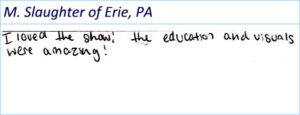 M. Slaughter of Erie, PA
I loved the show! the education and visuals
were amazing!